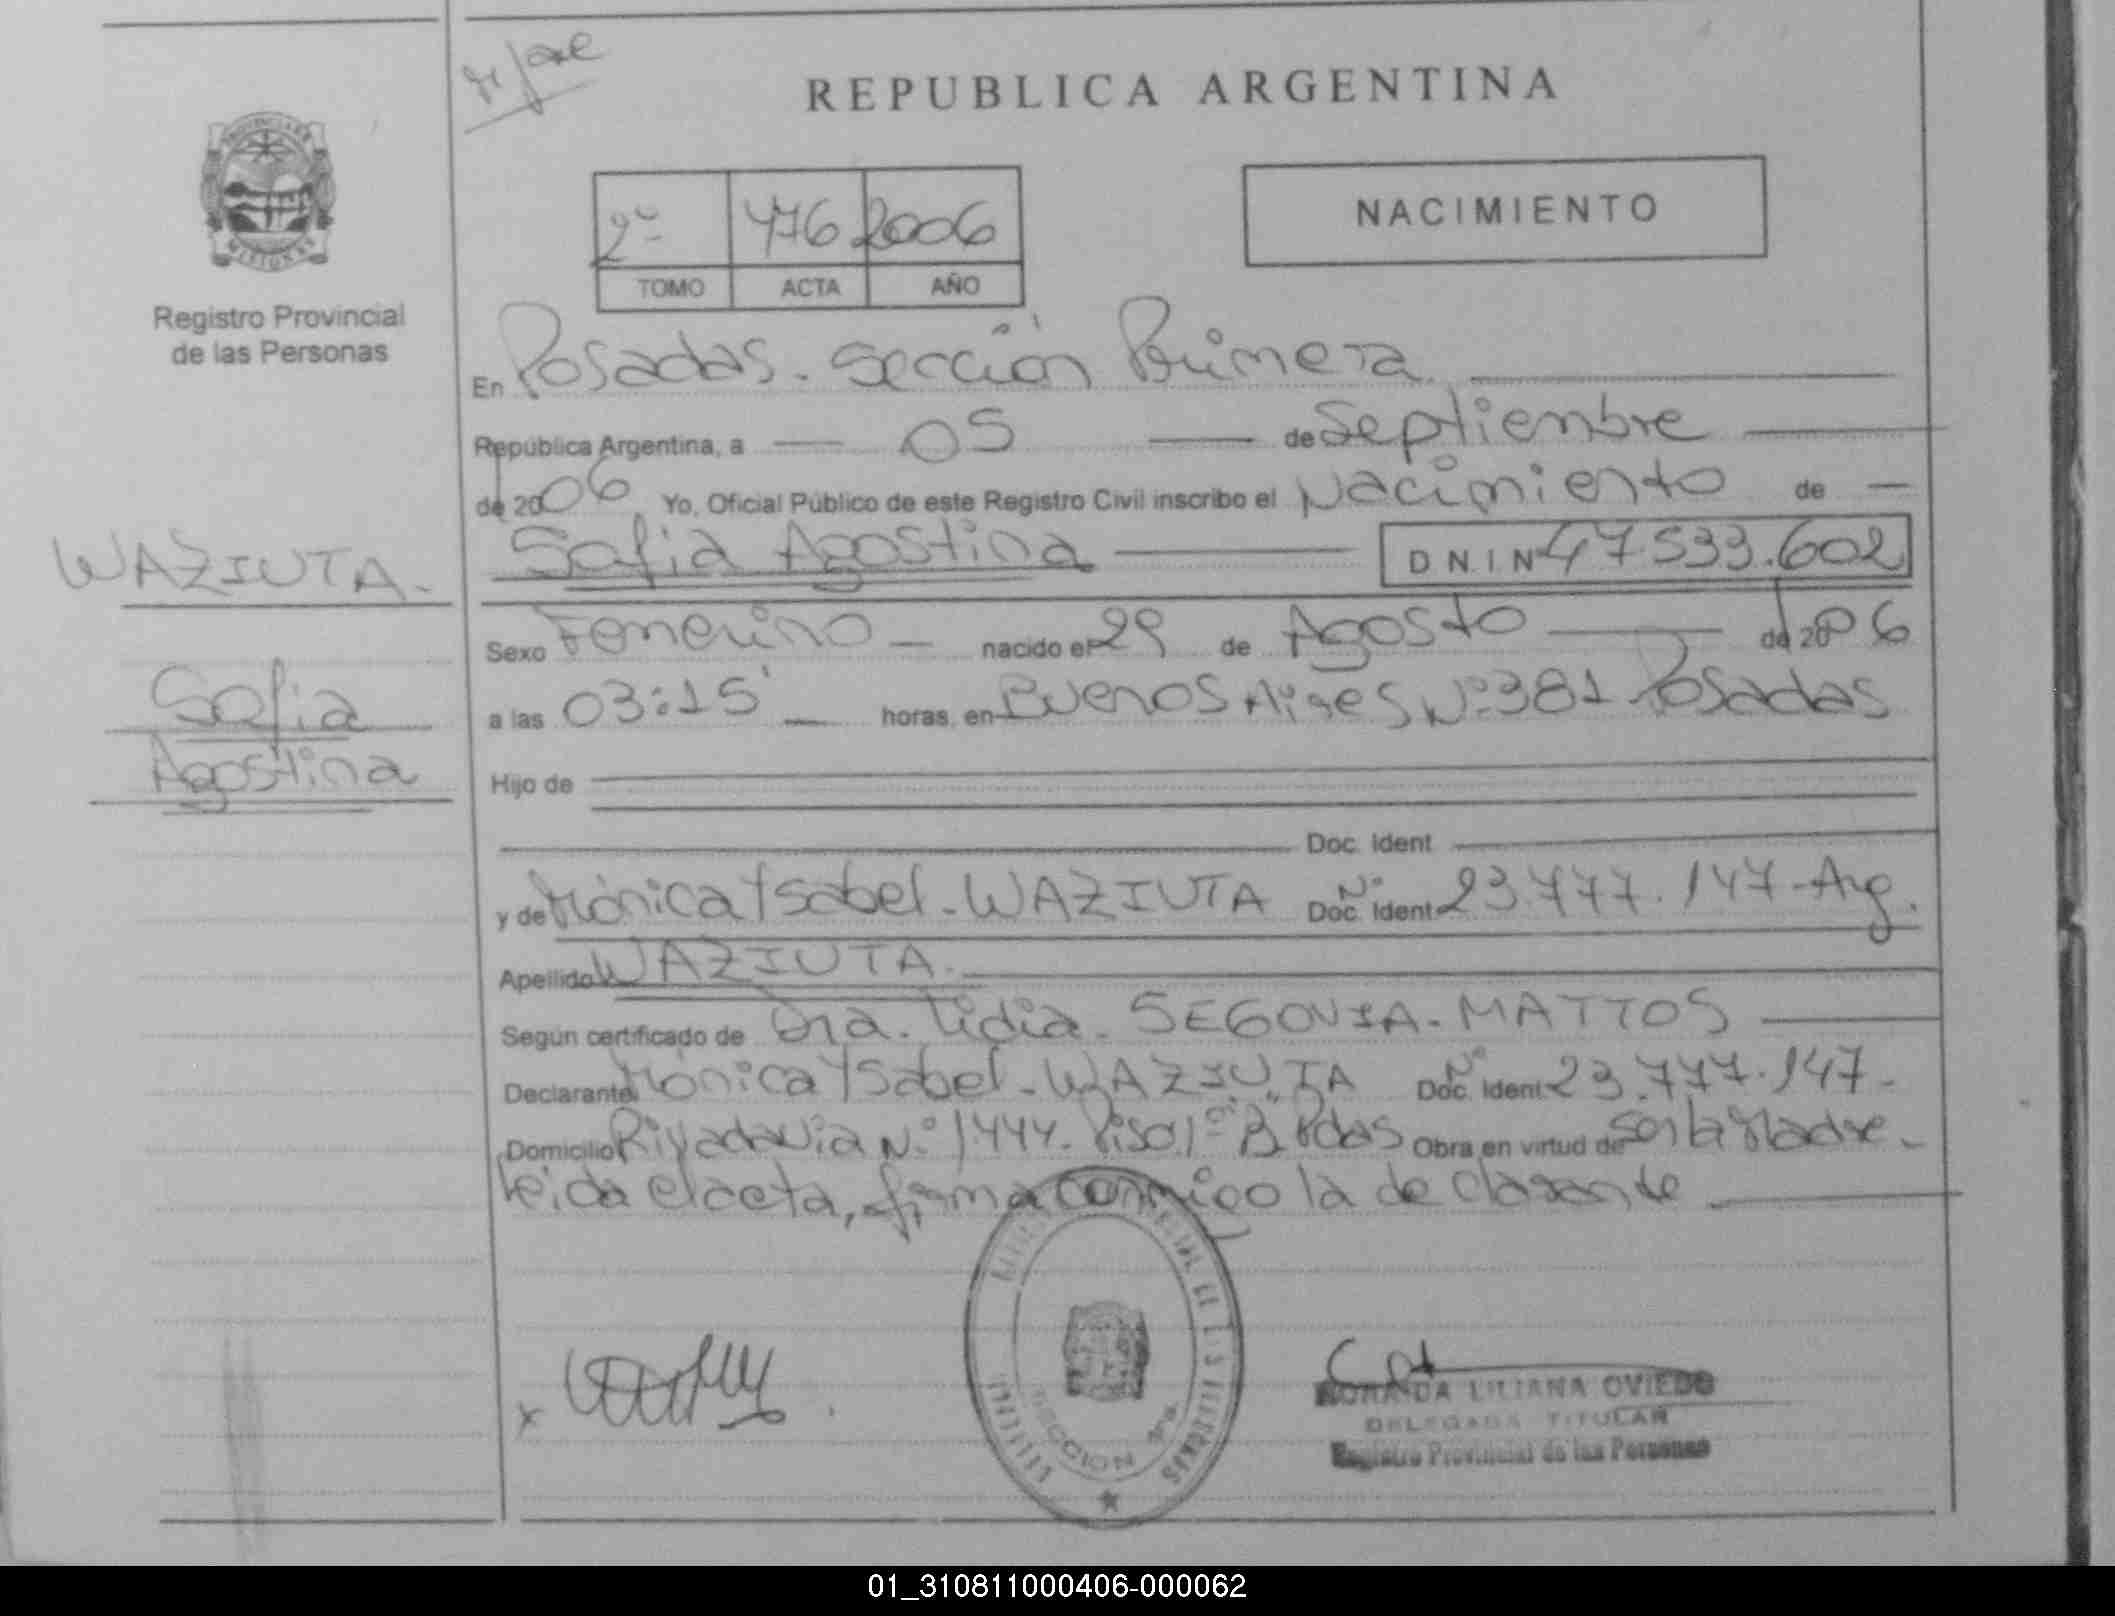 REPUBLICA ARGENTINA
Registro Provincial
de las Personas
2º 476 2006
TOMO ACTA AÑO
NACIMIENTO
En Posadas. Sección Primera
República Argentina, a 05 de Septiembre
de 2006 Yo, Oficial Público de este Registro Civil inscribo el Nacimiento de
Sofia Agostina D N I N 47.533.602
WAZIUTA.
Sofia
Agostina
Sexo Femenino nacido el 29 de Agosto de 2006
a las 03:15' horas, en Buenos Aires Nº 381 Posadas
Hijo de
Doc. Ident
y de Mónica Ysabel - WAZIUTA Doc. Ident Nº 23.777.147 - Arg.
Apellido WAZIUTA.
Según certificado de Dra. Lidia. SEGOVIA - MATTOS
Declarante Mónica Ysabel - WAZIUTA Doc. Ident Nº 23.777.147-
Domicilio Rivadavia Nº 1.444. Piso 1º "B" Pdas Obra en virtud de Ser la Madre -
leida el acta, firma conmigo la declarante
SECCION 1ra
LILIANA OVIEDO
DELEGADA TITULAR
Registro Provincial de las Personas
01_310811000406-000062